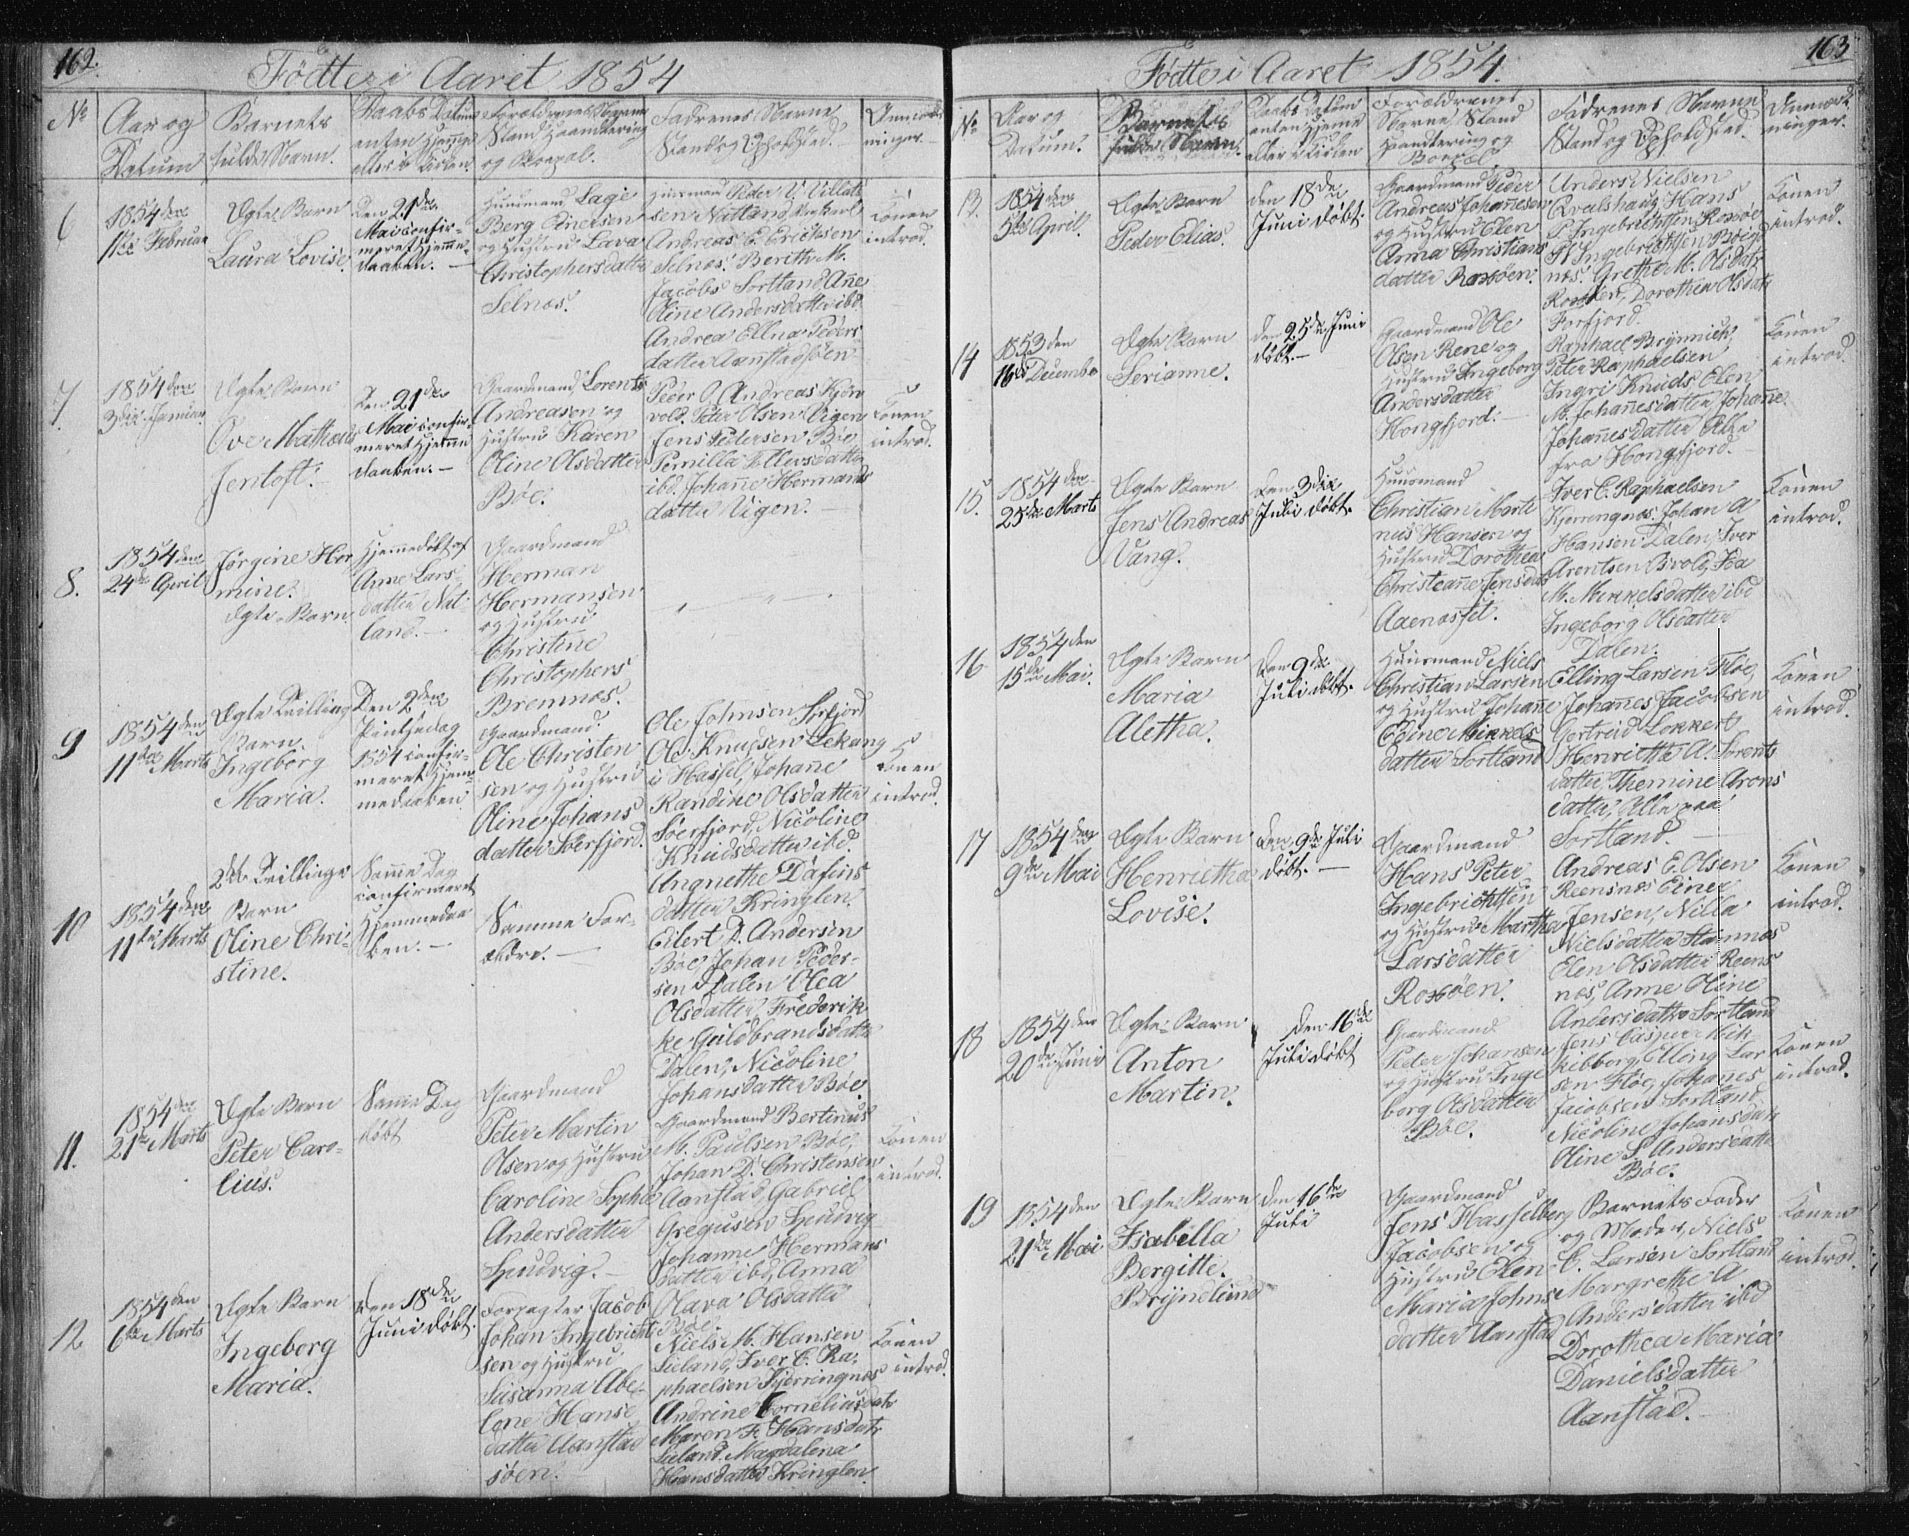 162.
Fødte i Aaret 1854
No
Aar og
Datum
Barnets
fulde Navn.
Daabs Datum
enten hjemme
eller i Kirken.
Forældrenes Navne
Stand Haandtering
og Boepæl.
Fadrenes Navne
Stand og Opholdsted.
6
1854 den
1ste Februar
Ægte Barn
Laura Lovise.
Den 21de
Mai confir-
meret hjemme-
daaben. —
Huusmand Lage
Berg Einersen
og Hustru Lava
Christophersdatter
Selnæs.
Andreas E. Ericksen
Selnæs. Berith M.
Jacobs Sortland, Ane
Oline Andersdatter ibd.
Andrea Ellna Peders
datter Aanstadsøen
Konen
introd.
7.
1854 den
3die Januar
Ægte Barn
Ove Mathæus
Jentoft.
Den 21de
Mai confir-
meret hjemme
daaben. —
Gaardmand Lorents
Andreasen og
Hustru Karen
Oline Olsdatter
Bøe.
Peder O. Andreas Kjørs
vold. Peter Olsen Vigen
Jens Pedersen Bøe,
Pernilla Ellevsdatter
ibd. Johanne Hermands
datter Vigen. —
Konen
introd.
8.
1854 den
24de April
Jørgine Her
mine.
Ægte Barn
Hjemmedøbt af
Anne Lars
datter Nat-
land. —
Gaardmand
Herman
Hermansen
og Hustru
Christine
Christophers
Bremnæs.
9
1854 den
11te Marts
Ægte Tvilling
Barn
Ingeborg
Maria.
Den 2den
Pintsedag
1854 confir-
meret hjem-
medaaben
Gaardmand
Ole Christen
sen og Hustru
Oline Johans
datter Sverfjord.
Ole Johnsen Sorfjord
Ole Knudsen Lekang
i Hassel, Johane
Randine Olsdatter
Sverfjord, Nicoline
Knudsdatter ibd.
Angnethe Dafins
datter Kringlen,
Konen
introd.
10
1854 den
11te Marts
2det Tvillings
Barn
Oline Chri-
stine.
Samme Dag
confirmeret
Hjemmedaa
ben. —
Samme For-
ældre. —
Eilert D. Andersen
Bøe, Johan Peder-
sen Dalen Olea
Olsdatter, Frederik-
ke Guldbrandsdatter
Dalen, Nicoline
Johansdatter Bøe.
11.
1854 den
21de Marts
Ægte Barn
Peter Caro-
lius.
Samme Dag
døbt
Gaardmand
Peter Martin
Olsen og Hustru
Caroline Sophie
Andersdatter
Spudvig. —
Gaardmand Bertinus
M. Paulsen Bøe,
Johan D. Christensen
Aanstad, Gabriel
Gregusen Spudvig
Johanne Hermans
datter ibd, Anna
Olava Olsdatter
Bøe.
Konen
introd.
12
1854 den
6te Marts
Ægte Barn
Ingeborg
Maria.
Den 18de
Juni døbt.
Forpagter Jacob
Johan Ingebricht-
sen og Hustru
Susanna Abe-
lone Hans
datter Aanstad
søen.
Niels M. Hansen
Iver C. Ra-
phaelsen Kjerringnæs
Andrine Cornelius dat
Maren F. Hansdatr
Magdalena
Hansdatter Kringlen.
Konen
introd.
163
Fødte i Aaret 1854.
No
Aar og
Datum.
Barnets
fulde Navn.
Daabs Datum
enten hjemme
eller i Kirken
Forældrenes
Navne Stand
Haandtering og
Boepæl
Fadrenes Navne
Stand og Opholdsted.
13.
1854 den
5te April.
Ægte Barn
Peder Elias.
Den 18de
Juni døbt.
Gaardmand Peder
Andreas Johannesen
og Hustru Elen
Anna Christians
datter Roxøen.
Anders Nielsen
Kvalshaug Hans
P. Ingebrichtsen Roxøe
P. Ingebrichtsen Bøig
næs. Grethe M. Olsdatr
Dorothea Olsdatr
Forfjord.
Konen
introd.
14
1853 den
16de December
Ægte Barn
Serianne.
Den 25de Juni
døbt. —
Gaardmand Ole
Olsen Rene og
Hustru Ingeborg
Andersdatter
Hongfjord. —
Raphael Brynnick
Peter Raphaelsen
Ingri Knuds Elen
M. Johannesdatter, Johanne
Johannesdatter Alle
fra Hongfjord. —
Konen
introd.
15.
1854 den
25de Marts
Ægte Barn
Jens Andreas
Vang.
Den 3die
Juli døbt.
Huusmand
Christian Marti
nus Hansen og
Hustru Dorothea
Christianne Jensdatr
Iver C. Raphaelsen
Kjerrengnæs. Johan A
Hansen Dalen, Iver
Arentsen
M. Mikkelsdatter ibd
Ingeborg Olsdatter
Dalen.
Konen
introd.
16
1854 den
15de Mai.
Ægte Barn
Maria
Aletha.
Den 9de
Juli døbt.
Huusmand Niels
Christian Larsen
og Hustru Johanne
Eline Mikkels
datter Sortland
Elling Larsen Fløe,
Johannes Jacobsen
Gertruid Lokkert
Henrietta A. Lorents
datter, Themine Arons
datter, Alle paa
Sortland. —
Konen
introd.
17
1854 den
9de Mai
Ægte Barn
Henrietha
Lovise.
Den 9de Juli
døbt. —
Gaardmand
Hans Peter
Ingebrichtsen
og Hustru Martha
Larsdatter
Roxøen.
Andreas E. Olsen
Reensnæs Einer
Jensen, Nilla
Nielsdatter Steinnæs
Elen Olsdatter Reens
næs, Anne Oline
Andersdatter Sortland
Konen
introd.
18
1854 den
20de Juni
Ægte Barn
Anton
Martin.
Den 16de
Juli døbt
Gaardmand
Peder Johansen
og Hustru Inge
borg Olsdatter
Bøe.
Jens Casper Kik
kibborg, Elling Lar
sen Fløe, Johannes
Jacobsen Sortland
Nicoline Johansdatr
Oline S. Andersdatter
Bøe.
Konen
introd.
19
1854 den
21de Mai
Ægte Barn
Isabella
Bergitte.
Brynelund
Den 16de
Juli
Gaardmand
Jens Hasselberg
Jacobsen og
Hustru Elen
Maria Johns
datter Aanstad
Barnets Fader
og Moder, Niels
C. Larsen Sortland
Margrethe A
Andersdatter ibd
Dorothea Maria
Danielsdatter
Aanstad. —
Konen
introd.